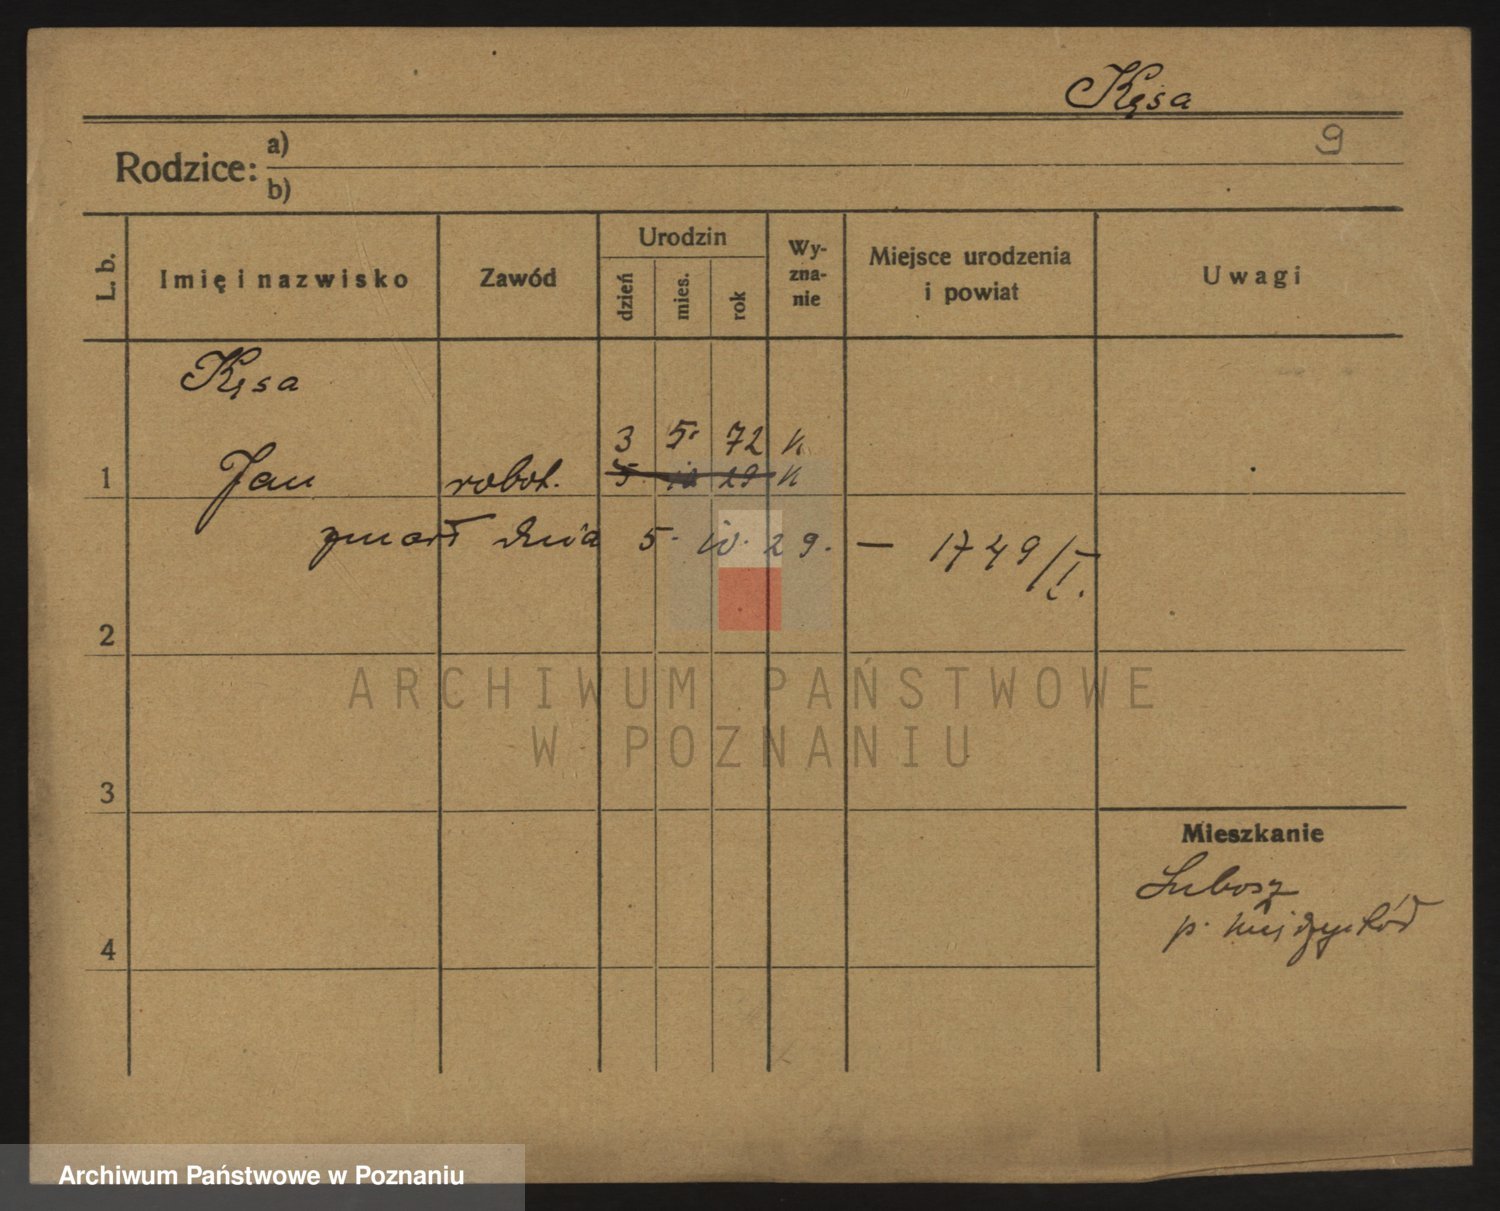 Kęsa
9
Rodzice: a)
b)
L. b. Imię i nazwisko Zawód Urodzin dzień mies. rok Wy-zna-nie Miejsce urodzenia i powiat Uwagi
Kęsa
3 5. 72 k.
1 Jan robot. 5 29 k
zmarł dnia 5. iv. 29. — 1749/I.
2
ARCHIWUM PAŃSTWOWE
W POZNANIU
3
Mieszkanie
Lubosz
p. Międzychód
4
Archiwum Państwowe w Poznaniu